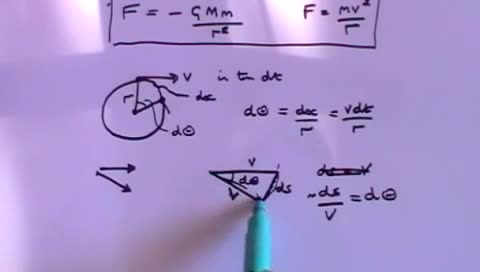 F = - GMm/r² F = mv²/r
r v in tm dt
dx
dθ
dθ = dx/r = vdt/r
v
dθ ds
v
~ds/v = dθ